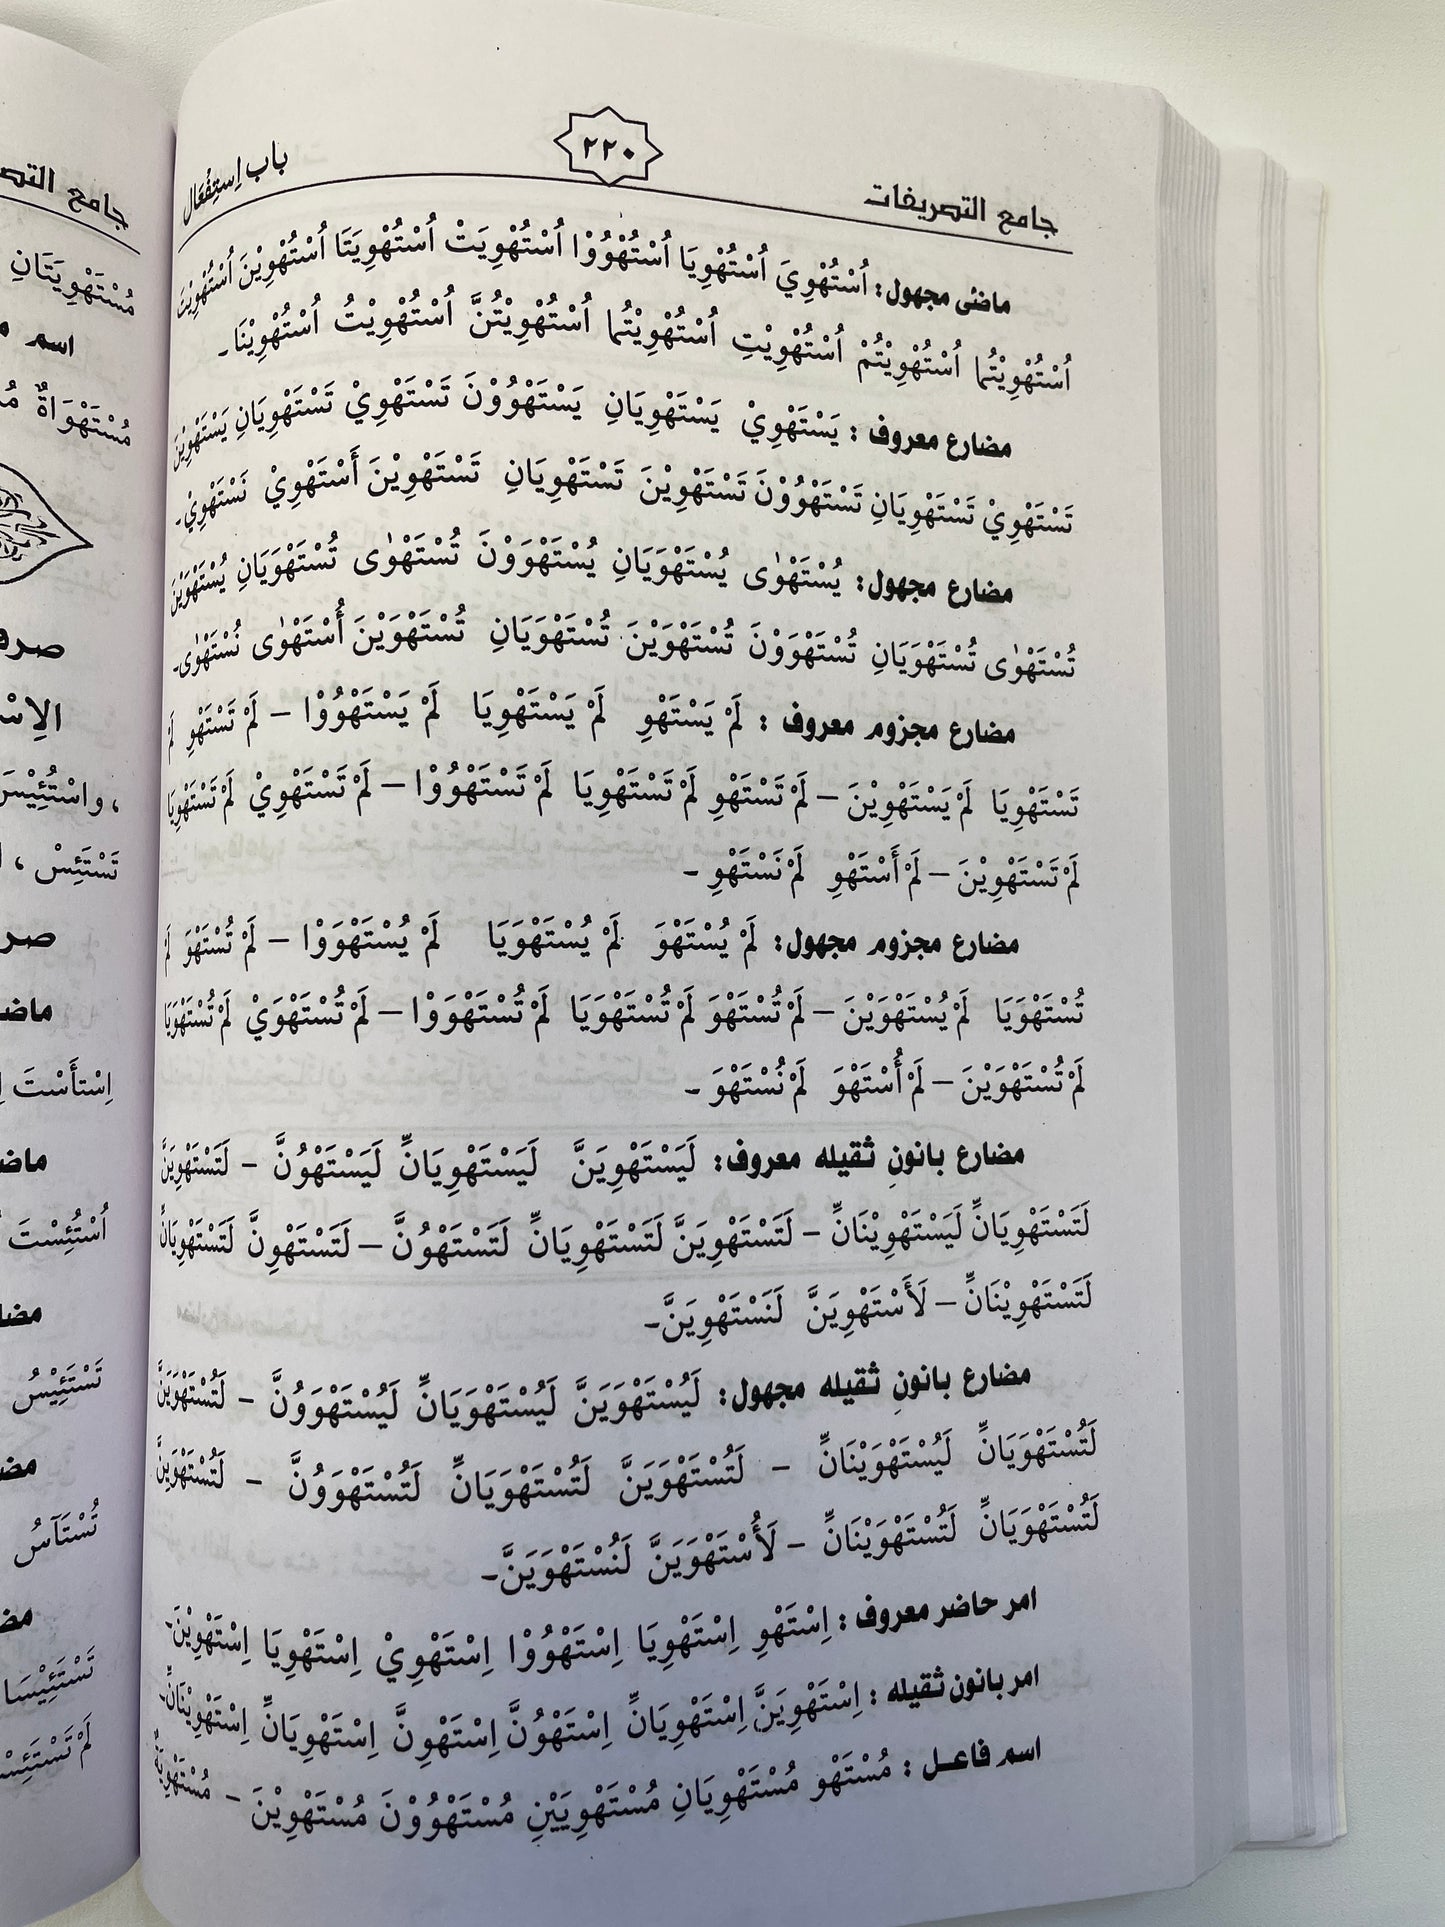 جامع التصريفات
٢٢٠
باب اِستِفْعَال
ماضئ مجهول: اُسْتُهْوِيَ اُسْتُهْوِيَا اُسْتُهْوُوْا اُسْتُهْوِيَتْ اُسْتُهْوِيَتَا اُسْتُهْوِيْنَ اُسْتُهْوِيْتَ
اُسْتُهْوِيْتُما اُسْتُهْوِيْتُمْ اُسْتُهْوِيْتِ اُسْتُهْوِيْتُما اُسْتُهْوِيْتُنَّ اُسْتُهْوِيْتُ اُسْتُهْوِيْنَا۔
مضارع معروف : يَسْتَهْوِيْ يَسْتَهْوِيَانِ يَسْتَهْوُوْنَ تَسْتَهْوِيْ تَسْتَهْوِيَانِ يَسْتَهْوِيْنَ
تَسْتَهْوِيْ تَسْتَهْوِيَانِ تَسْتَهْوُوْنَ تَسْتَهْوِيْنَ تَسْتَهْوِيَانِ تَسْتَهْوِيْنَ أَسْتَهْوِيْ نَسْتَهْوِيْ۔
مضارع مجهول: يُسْتَهْوٰى يُسْتَهْوَيَانِ يُسْتَهْوَوْنَ تُسْتَهْوٰى تُسْتَهْوَيَانِ يُسْتَهْوَيْنَ
تُسْتَهْوٰى تُسْتَهْوَيَانِ تُسْتَهْوَوْنَ تُسْتَهْوَيْنَ تُسْتَهْوَيَانِ تُسْتَهْوَيْنَ أُسْتَهْوٰى نُسْتَهْوٰى۔
مضارع مجزوم معروف : لَمْ يَسْتَهْوِ لَمْ يَسْتَهْوِيَا لَمْ يَسْتَهْوُوْا – لَمْ تَسْتَهْوِ لَمْ
تَسْتَهْوِيَا لَمْ يَسْتَهْوِيْنَ – لَمْ تَسْتَهْوِ لَمْ تَسْتَهْوِيَا لَمْ تَسْتَهْوُوْا – لَمْ تَسْتَهْوِيْ لَمْ تَسْتَهْوِيَا
لَمْ تَسْتَهْوِيْنَ – لَمْ أَسْتَهْوِ لَمْ نَسْتَهْوِ ۔
مضارع مجزوم مجهول: لَمْ يُسْتَهْوَ لَمْ يُسْتَهْوَيَا لَمْ يُسْتَهْوَوْا – لَمْ تُسْتَهْوَ لَمْ
تُسْتَهْوَيَا لَمْ يُسْتَهْوَيْنَ – لَمْ تُسْتَهْوَ لَمْ تُسْتَهْوَيَا لَمْ تُسْتَهْوَوْا – لَمْ تُسْتَهْوَيْ لَمْ تُسْتَهْوَيَا
لَمْ تُسْتَهْوَيْنَ – لَمْ أُسْتَهْوَ لَمْ نُسْتَهْوَ ۔
مضارع بانونِ ثقيله معروف: لَيَسْتَهْوِيَنَّ لَيَسْتَهْوِيَانِّ لَيَسْتَهْوُنَّ – لَتَسْتَهْوِيَنَّ
لَتَسْتَهْوِيَانِّ لَيَسْتَهْوِيْنَانِّ – لَتَسْتَهْوِيَنَّ لَتَسْتَهْوِيَانِّ لَتَسْتَهْوُنَّ – لَتَسْتَهْوِنَّ لَتَسْتَهْوِيَانِّ
لَتَسْتَهْوِيْنَانِّ – لَأَسْتَهْوِيَنَّ لَنَسْتَهْوِيَنَّ۔
مضارع بانونِ ثقيله مجهول: لَيُسْتَهْوَيَنَّ لَيُسْتَهْوَيَانِّ لَيُسْتَهْوَوُنَّ – لَتُسْتَهْوَيَنَّ
لَتُسْتَهْوَيَانِّ لَيُسْتَهْوَيْنَانِّ – لَتُسْتَهْوَيَنَّ لَتُسْتَهْوَيَانِّ لَتُسْتَهْوَوُنَّ – لَتُسْتَهْوَيِنَّ
لَتُسْتَهْوَيَانِّ لَتُسْتَهْوَيْنَانِّ – لَأُسْتَهْوَيَنَّ لَنُسْتَهْوَيَنَّ۔
امر حاضر معروف : اِسْتَهْوِ اِسْتَهْوِيَا اِسْتَهْوُوْا اِسْتَهْوِيْ اِسْتَهْوِيَا اِسْتَهْوِيْنَ۔
امر بانون ثقيله : اِسْتَهْوِيَنَّ اِسْتَهْوِيَانِّ اِسْتَهْوُنَّ اِسْتَهْوِنَّ اِسْتَهْوِيَانِّ اِسْتَهْوِيْنَانِّ۔
اسم فاعل : مُسْتَهْوٍ مُسْتَهْوِيَانِ مُسْتَهْوِيَيْنِ مُسْتَهْوُوْنَ مُسْتَهْوِيْنَ – مُسْتَهْوِيَةٌ
جامع
مُسْتَهْوِيَتَانِ
اسم
مُسْتَهْوَاةٌ
صرف
، واسْتُئِيْسَ
تَسْتَئِسْ ،
اِسْتَأَسْتَ
اُسْتُئِسْتَ
تَسْتَئِيْسُ
تُسْتَآسُ
تَسْتَئِيْسَا